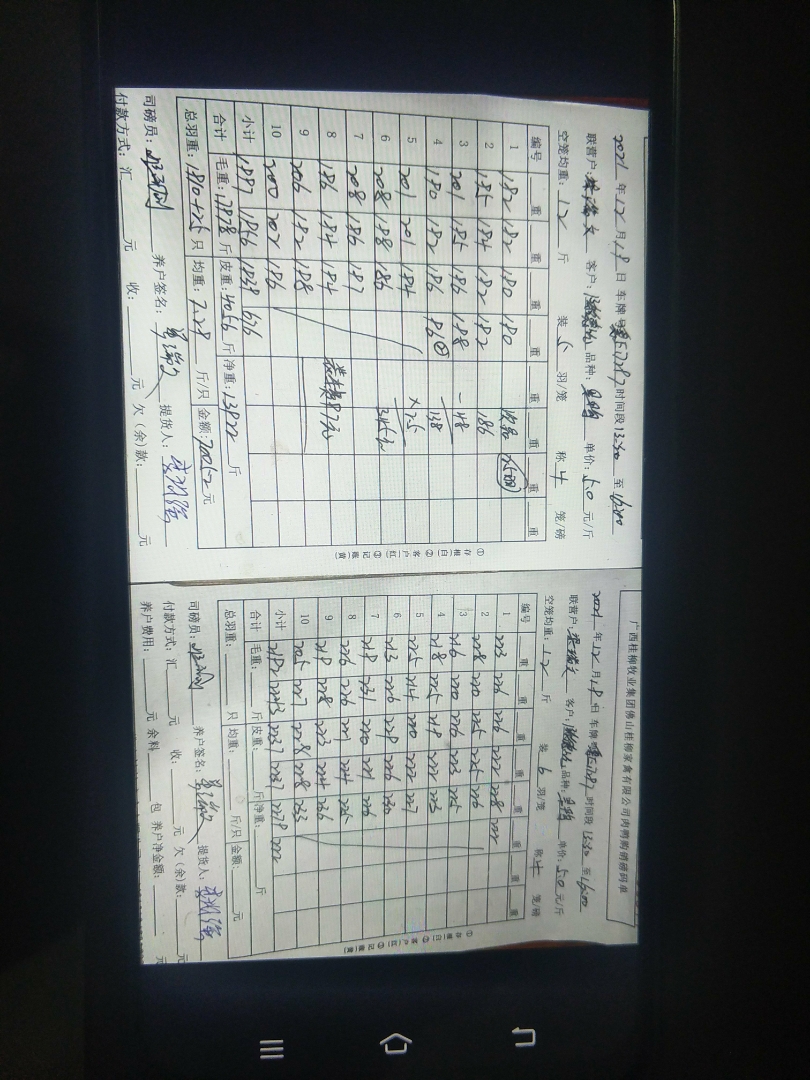 2021年12月18日 车牌号: 时间段13:30至16:00
联营户: 客户: 品种: 单价:5.0元/斤
空笼均重:12斤 装5羽/笼 称4笼/磅
编号 重 重 重 重 重 重 重
1 182 182 180 180 次品 25羽
2 185 184 182 182 186
3 201 185 186 188 -48
4 180 182 186 86② 138
5 201 201 184 ×2.5
6 208 188 186 345元
7 208 186 187
8 186 184 184 87元
9 206 182 188
10 200 202 186
小计 1856 1838 636
合计 毛重:17878斤 皮重:4056斤 净重:13822斤
总羽重: 只 均重:7.28斤/只 金额:70052元
司磅员: 养户签名: 提货人:
付款方式:汇 元 收: 元 欠(余)款: 元
①存根(白) ②客户(红) ③记账(黄)
广西桂柳牧业集团佛山桂柳家禽有限公司肉鸭购销磅码单
2021年12月18日 车牌 时间段13:30至16:00
联营户: 客户: 品种: 单价:5.0元/斤
空笼均重:12斤 装6羽/笼 称4笼/磅
编号 重 重 重 重 重 重 重
1 223 226 226 222 228 222
2 228 220 225 225 226
3 216 220 226 223 225
4 218 225 218 222 225
5 225 214 220 222 227
6 213 226 228 226 230
7 218 231 220 221 226
8 226 226 221 224 225
9 218 228 223 224 236
10 205 227 228 228 233
小计 2182 2243 2237 2237 2278 222
合计 毛重: 斤 皮重: 斤 净重: 斤
总羽重: 只 均重: 斤/只 金额: 元
司磅员: 养户签名: 提货人:
付款方式:汇 元 收: 元 欠(余)款: 元
养户费用: 元 余料 包 养户净金额: 元
①存根(白) ②客户(红) ③记账(黄)